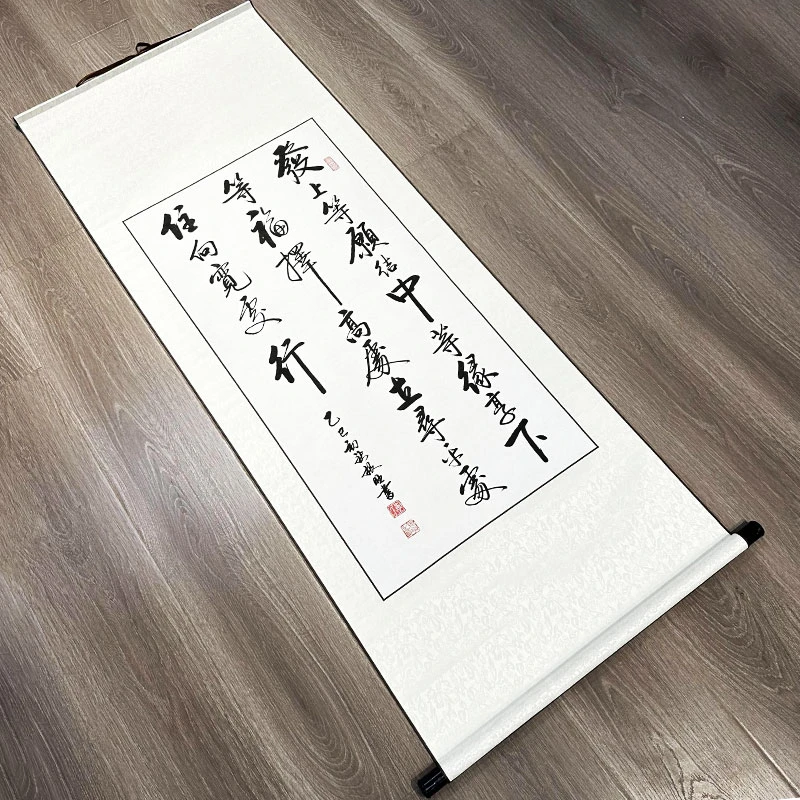 發上等願結中等緣享下
等福擇高處立尋平處
住向寬處行
乙巳初秋書